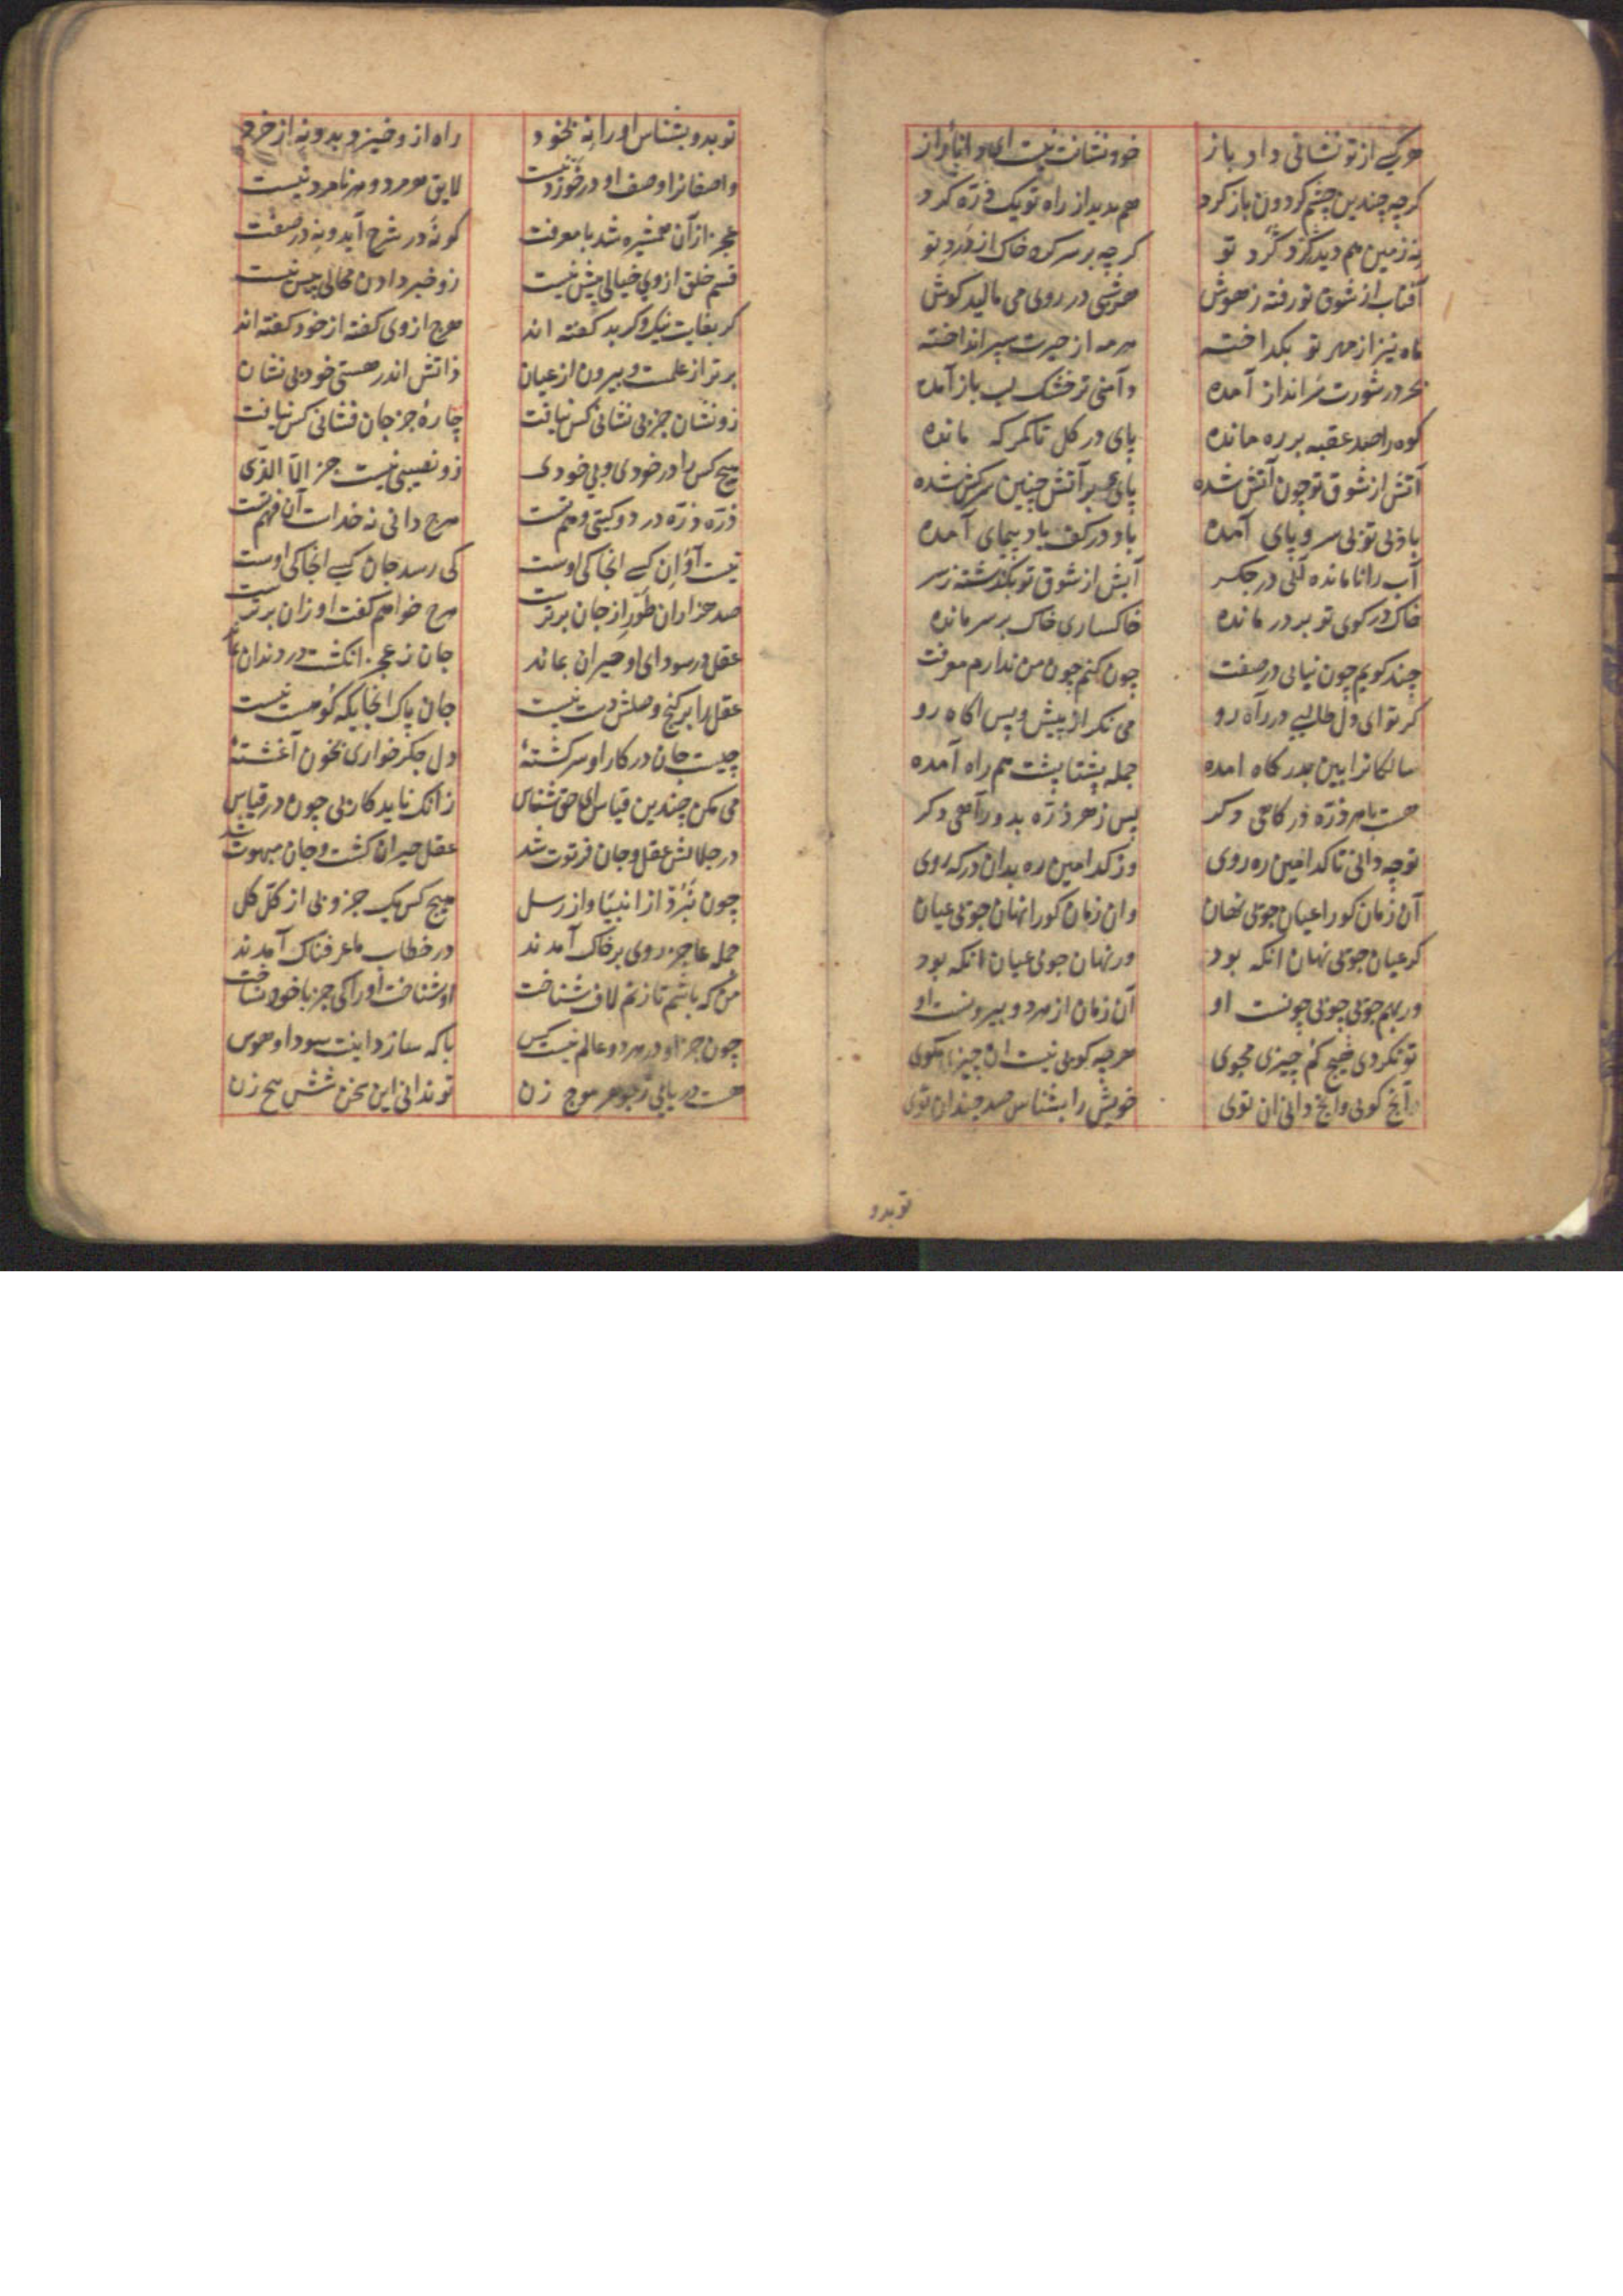 هر کسی از تو نشانی داد باز خود نشانت نیست ای دانای راز
کرچه چندین چشم کردون باز کرد هم ندید از راه تو یک ذره کرد
نه زمین هم دید هرکز کرد تو کرچه بر سر کرد خاک از درد تو
آفتاب از شوق تو رفته ز هوش هر شبی در روی می مالید کوش
ماه نیز از مهر تو بکداخته هر مه از حیرت سپر انداخته
بحر در شورت سرانداز آمده دامنی تر خشک لب باز آمده
کوه را صد عقبه بر ره مانده پای در کل تا کمرکه مانده
آتش از شوق تو چون آتش شده پای بر آتش چنین سرکش شده
باد بی تو بی سر و پای آمده باد در کف باد پیمای آمده
آب را نامانده آبی در جکر آبش از شوق تو بکذشته ز سر
خاک در کوی تو بر در مانده خاکساری خاک بر سر مانده
چند کویم چون نیایی در صفت چون کنم چون من ندارم معرفت
کر تو ای دل طالبی در راه رو می نکر از پیش و پس اکاه رو
سالکانرا بین بدرکاه امده جمله پشتا پشت هم راه آمده
هست با هر ذره درکاهی دکر پس ز هر ذره بدو راهی دکر
تو چه دانی تا کدامین ره روی وز کدامین ره بدان درکه روی
آن زمان کورا عیان جویی نهان وان زمان کورا نهان جویی عیان
کر عیان جویی نهان انکه بود ور نهان جویی عیان انکه بود
ور بهم جویی چو بی چونست او آن زمان از هر دو بیرونست او
تو نکردی هیچ کم چیزی مجوی هرچه کویی نیست ان چیزی مکوی
آنچ کویی وآنچ دانی ان توی خویش را بشناس صد چندان توی
تو بدو
تو بدو بشناس او را نه بخود راه از و خیزد بدو نه از خرد
واصفانرا وصف او درخورد نیست لایق هر مرد و هر نامرد نیست
عجز از آن همشیره شد با معرفت کو نه در شرح آید و نه در صفت
قسم خلق از وی خیالی بیش نیست زو خبر دادن محالی بیش نیست
کر بغایت نیک و کر بد کفته اند هرچ از وی کفته از خود کفته اند
برتر از علمست و بیرون از عیان ذاتش اندر هستی خود بی نشان
زو نشان جز بی نشانی کس نیافت چارهٔ جز جان فشانی کس نیافت
هیچ کس را در خودی و بی خودی زو نصیبی نیست جز الا الذی
ذره ذره در دو کیتی وهم تست هرچ دانی نه خداست آن فهم تست
نیست او آن کسی انجا کی اوست کی رسد جان کسی انجا کی اوست
صد هزاران طور از جان برترست هرچ خواهم کفت او زان برترست
عقل در سودای او حیران بماند جان ز عجز انکشت در دندان بماند
عقل را بر کنج وصلش دست نیست جان پاک انجایکه کو هست نیست
چیست جان در کار او سرکشتهٔ دل جکرخواری بخون آغشتهٔ
می مکن چندین قیاس ای حق شناس زانک ناید کار بی چون در قیاس
در جلالش عقل و جان فرتوت شد عقل حیران کشت و جان مبهوت شد
چون نبرد از انبیا و از رسل هیچ کس یک جزو پی از کل کل
جمله عاجز روی بر خاک آمدند در خطاب ما عرفناک آمدند
من که باشم تا زنم لاف شناخت او شناخت او را کی جز با خود نساخت
چون جز او در هر دو عالم نیست کس با که سازد اینت سودا و هوس
هست دریایی ز جوهر موج زن تو ندانی این سخن شش پنج زن